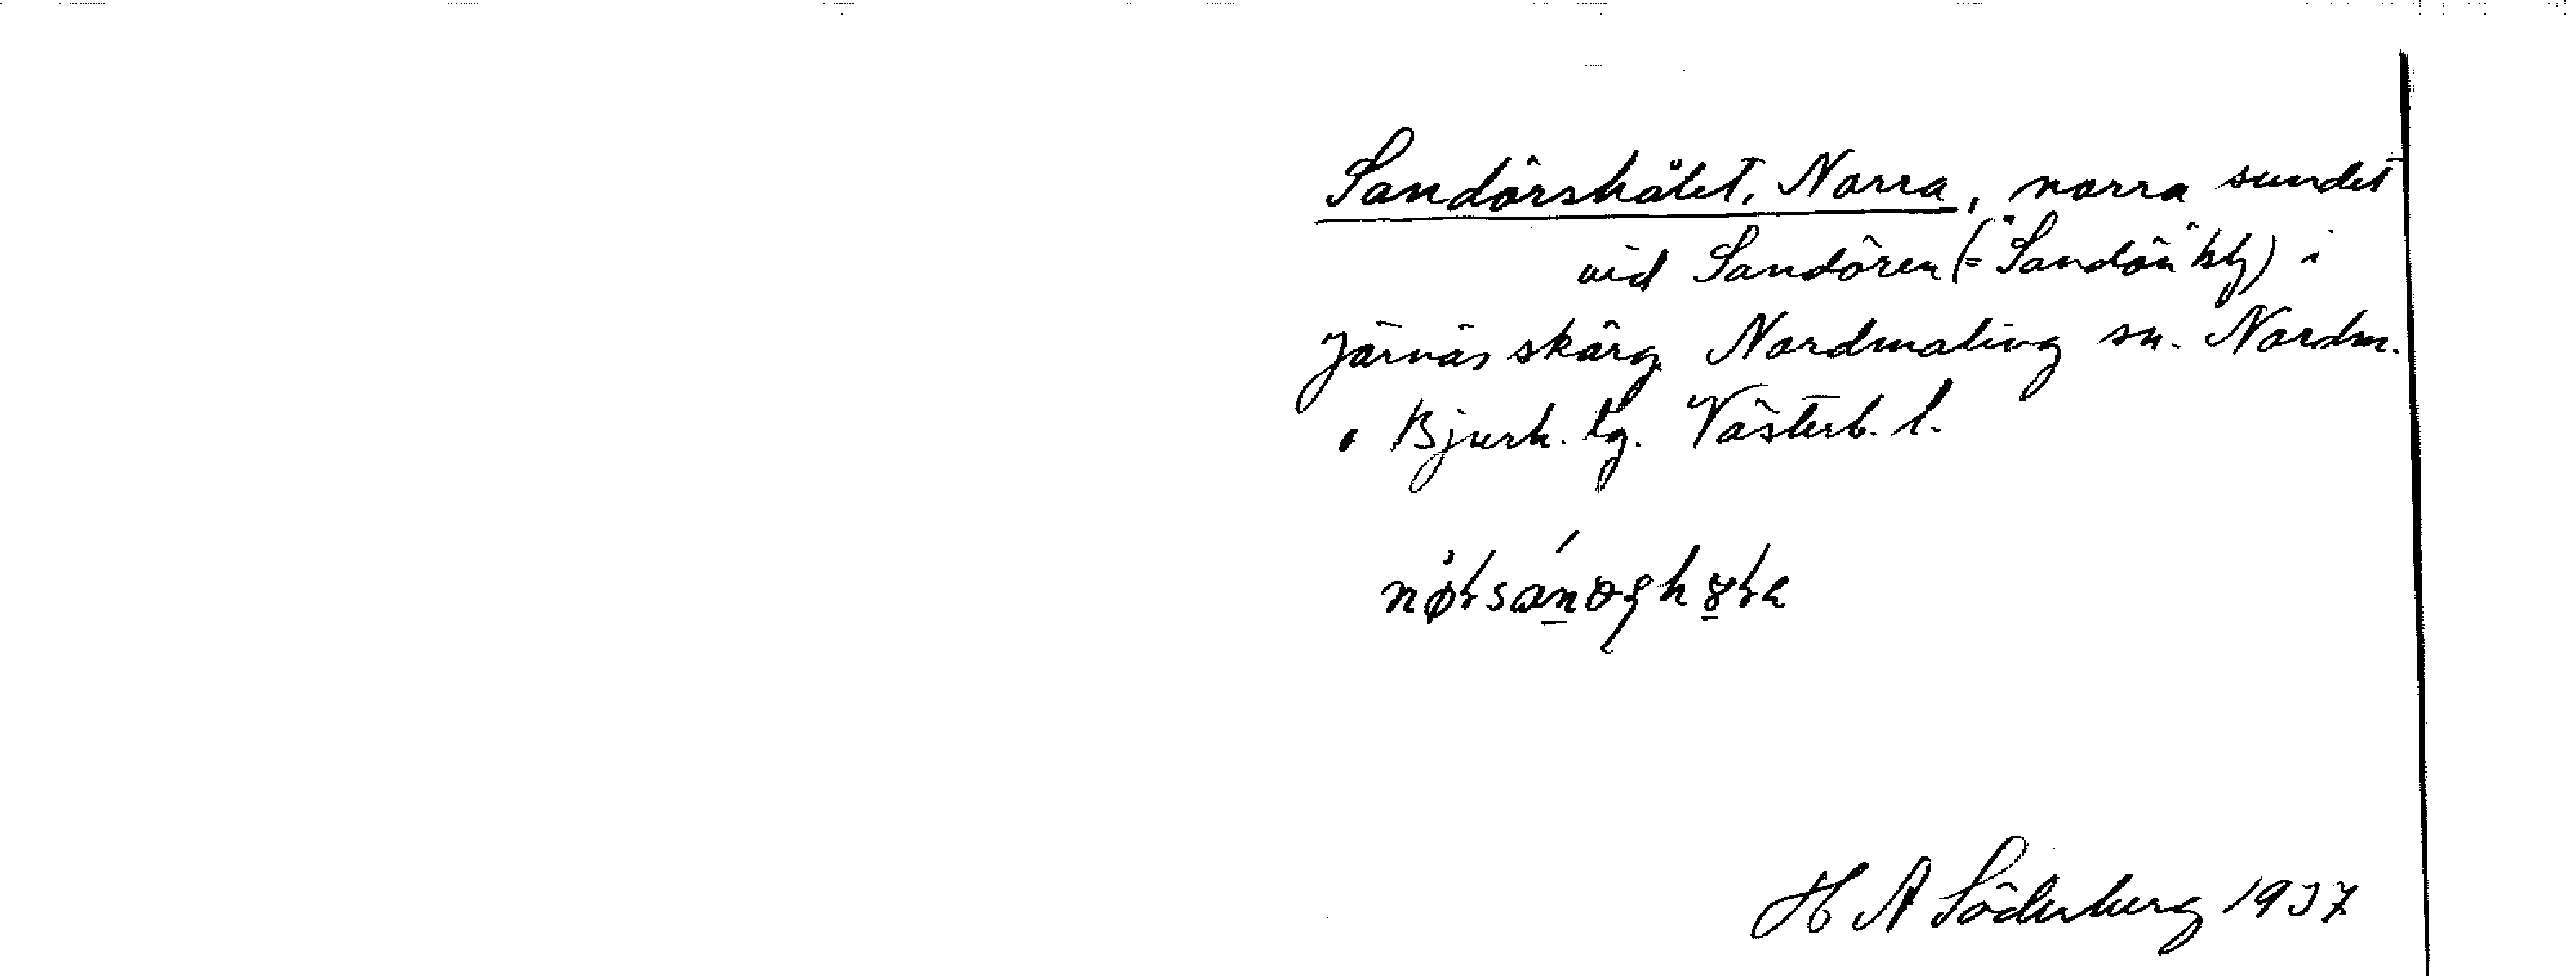 Sandörshålet, Norra, norra sundet
vid Sandören (="Sandön" kbl) i
Järnäs skärg. Nordmaling sn. Nordm.
o Bjurh. tg. Västerb. l.
H A Söderberg 1937